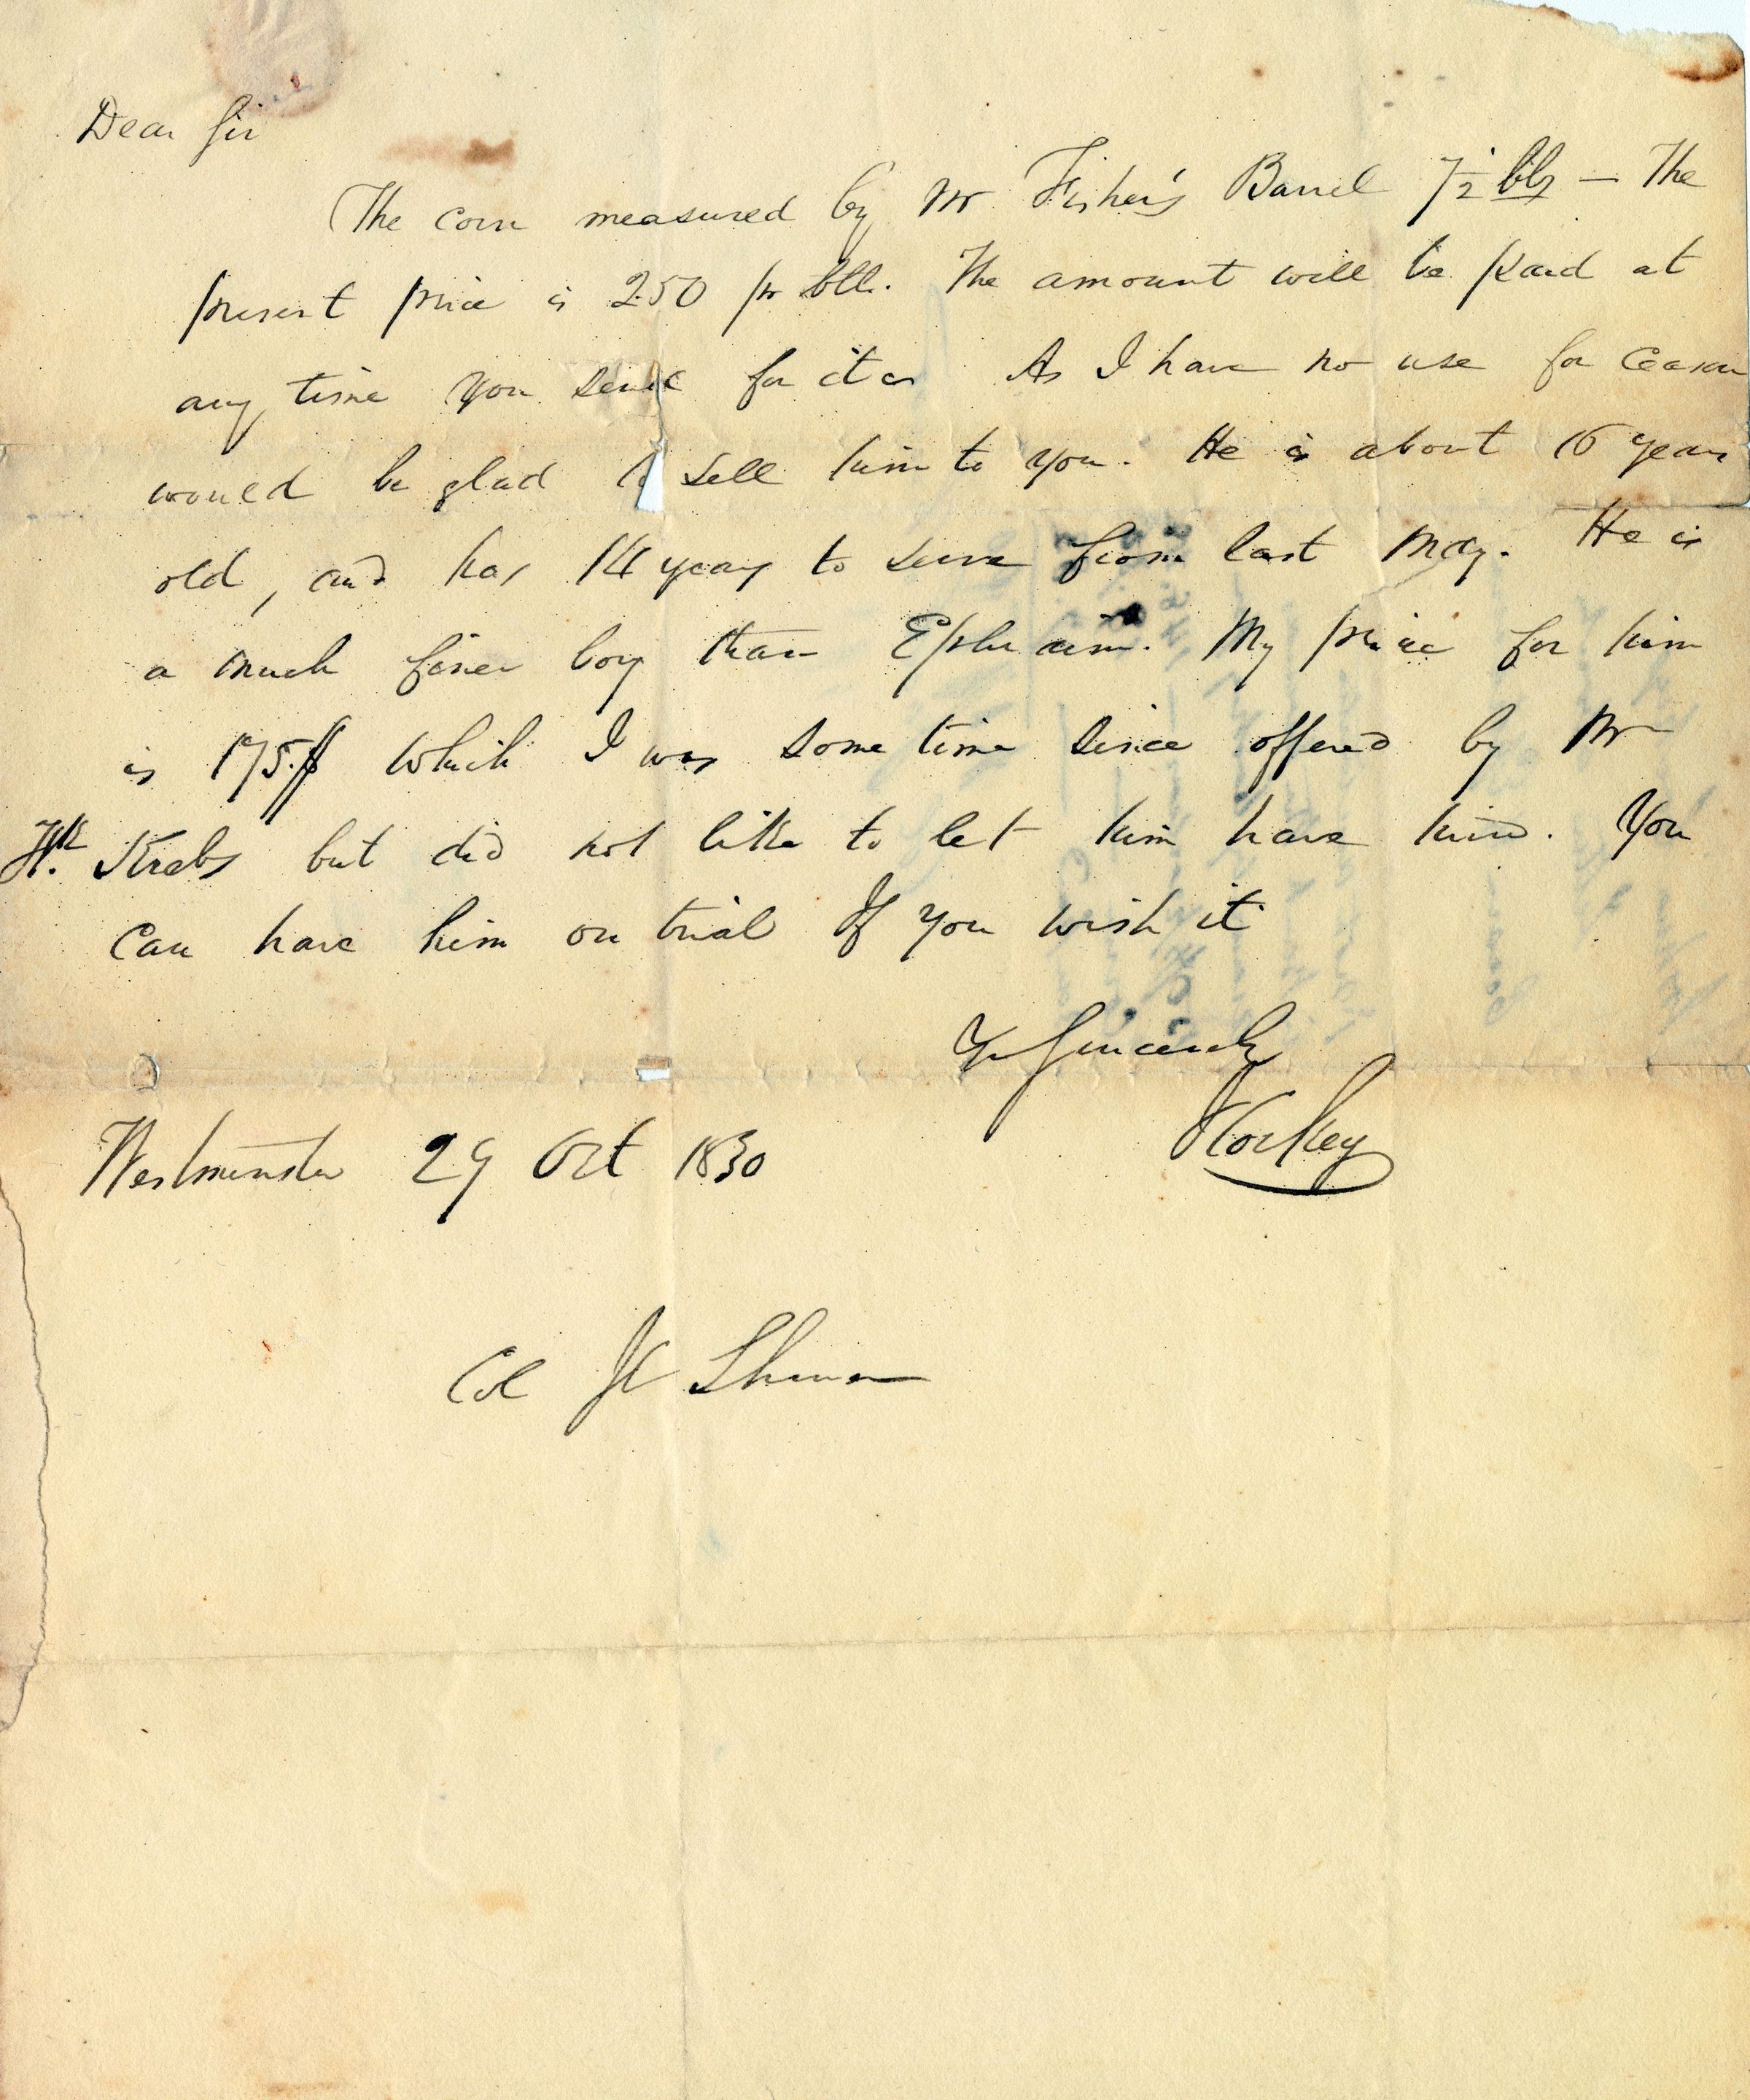 Dear Sir
The corn measured by Mr Fisher's Barrel 7½ bbls — The
present price is 2.50 pr bbl. The amount will be paid at
any time you send for it. As I have no use for Ceasar
would be glad to sell him to you. He is about 16 years
old, and has 14 years to serve from last May. He is
a much finer boy than Ephraim. My price for him
is 175.$ which I was some time since offered by Mr
Krebs but did not like to let him have him. You
can have him on trial If you wish it
Yr Sincerely
Westminster 29 Oct 1830
Col